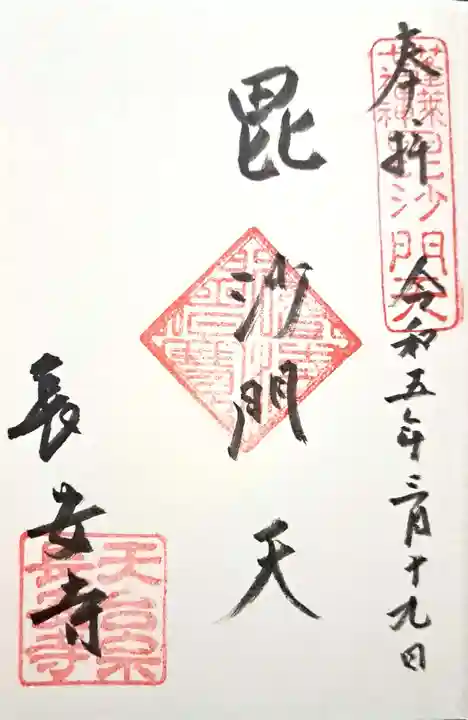 奉拝 令和五年三月十九日
蓬莱七福神 毘沙門天
毘沙門天
長安寺
天台宗
長安寺